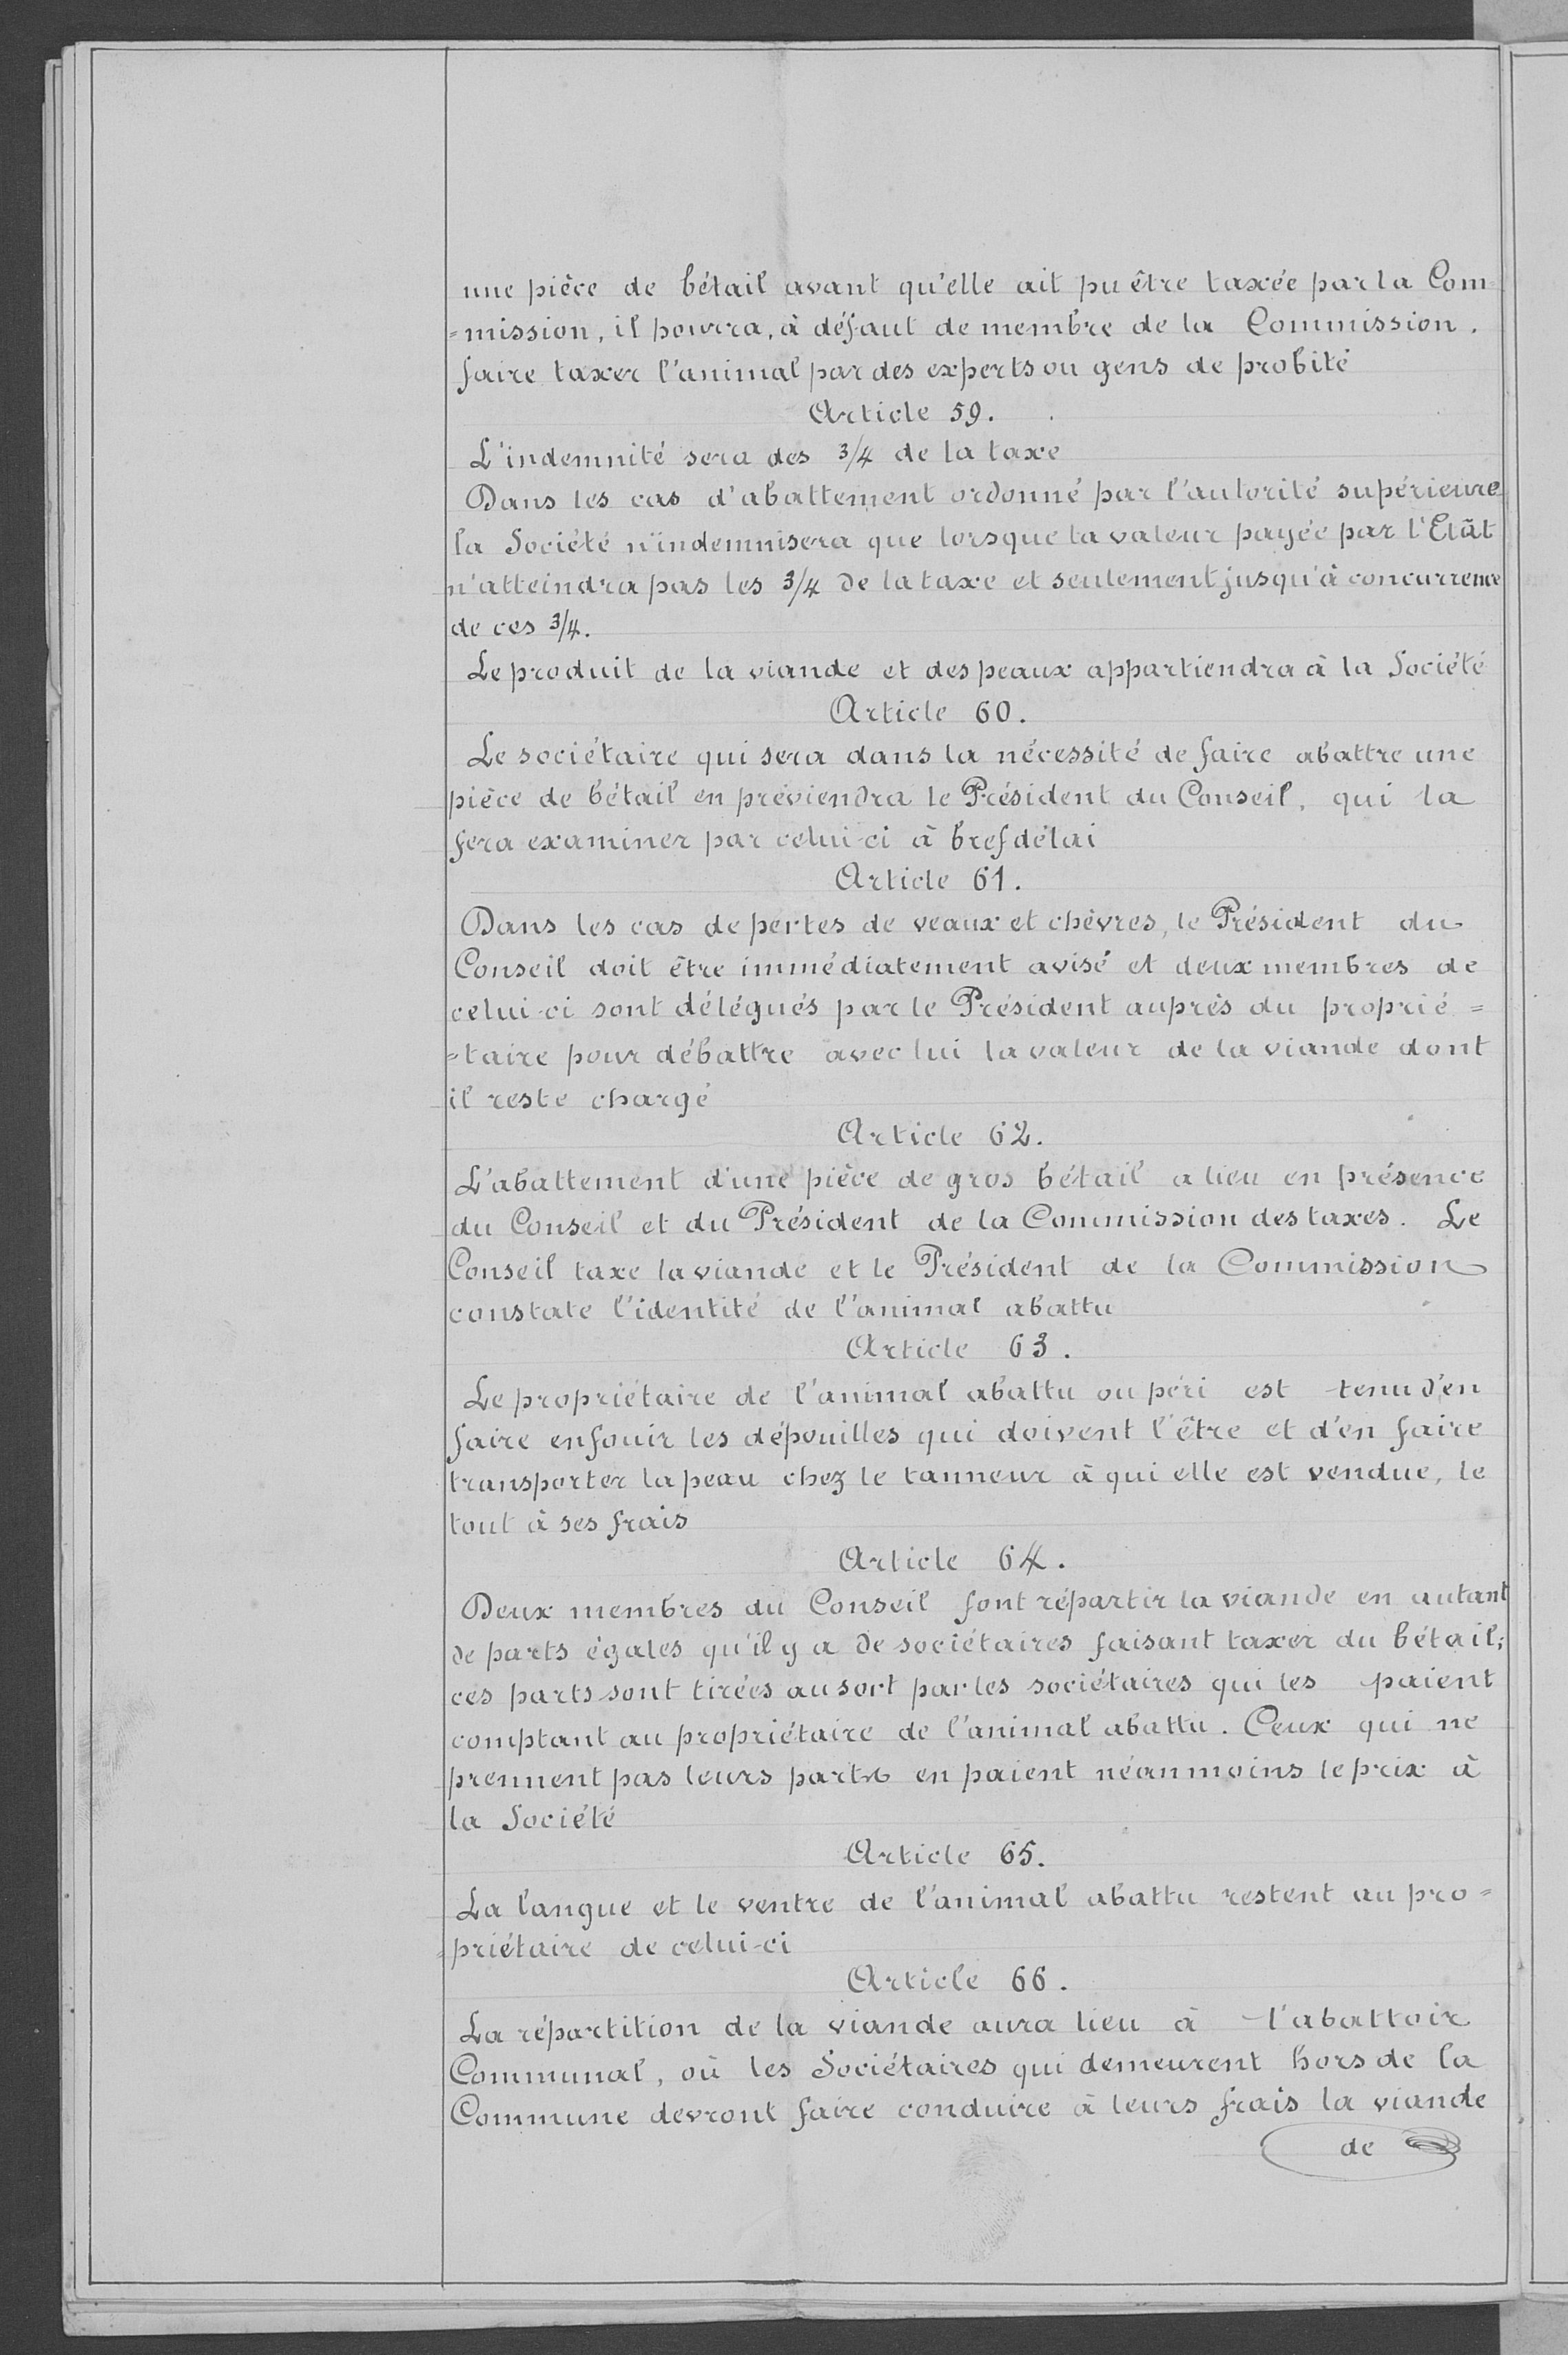 une pièce de bétail avant qu'elle ait pu être taxée par la Com=
=mission, il pourra, à défaut de membre de la Commission,
faire taxer l'animal par des experts ou gens de probité
Article 59.
L'indemnité sera des 3/4 de la taxe
Dans les cas d'abattement ordonné par l'autorité supérieure
la Société n'indemnisera que lorsque la valeur payée par l'Etât
n'atteindra pas les 3/4 de la taxe et seulement jusqu'à concurrence
de ces 3/4.
Le produit de la viande et des peaux appartiendra à la Société
Article 60.
Le sociétaire qui sera dans la nécessité de faire abattre une
pièce de bétail en préviendra le Président du Conseil, qui la
fera examiner par celui-ci à bref délai
Article 61.
Dans les cas de pertes de veaux et chèvres, le Président du
Conseil doit être immédiatement avisé et deux membres de
celui-ci sont délégués par le Président auprès du proprié=
=taire pour débattre avec lui la valeur de la viande dont
il reste chargé
Article 62.
L'abattement d'une pièce de gros bétail a lieu en présence
du Conseil et du Président de la Commission des taxes. Le
Conseil taxe la viande et le Président de la Commission
constate l'identité de l'animal abattu
Article 63.
Le propriétaire de l'animal abattu ou péri est tenu d'en
faire enfouir les dépouilles qui doivent l'être et d'en faire
transporter la peau chez le tanneur à qui elle est vendue, le
tout à ses frais
Article 64.
Deux membres du Conseil font répartir la viande en autant
de parts égales qu'il y a de sociétaires faisant taxer du bétail;
ces parts sont tirées au sort par les sociétaires qui les paient
comptant au propriétaire de l'animal abattu. Ceux qui ne
prennent pas leurs parts en paient néanmoins le prix à
la Société
Article 65.
La langue et le ventre de l'animal abattu restent au pro=
=priétaire de celui-ci
Article 66.
La répartition de la viande aura lieu à l'abattoir
Communal, où les Sociétaires qui demeurent hors de la
Commune devront faire conduire à leurs frais la viande
de